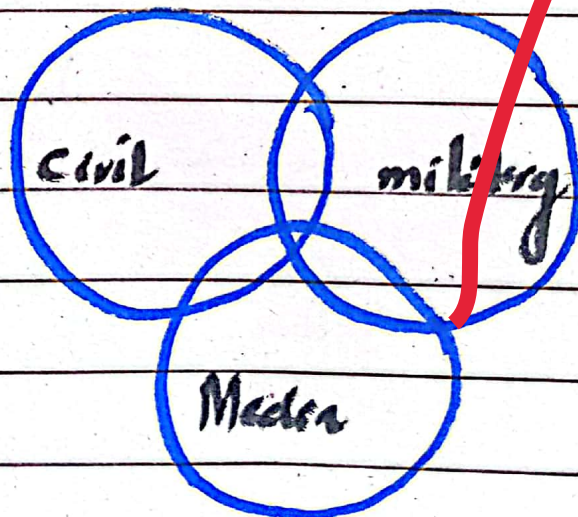 civil
military
Media